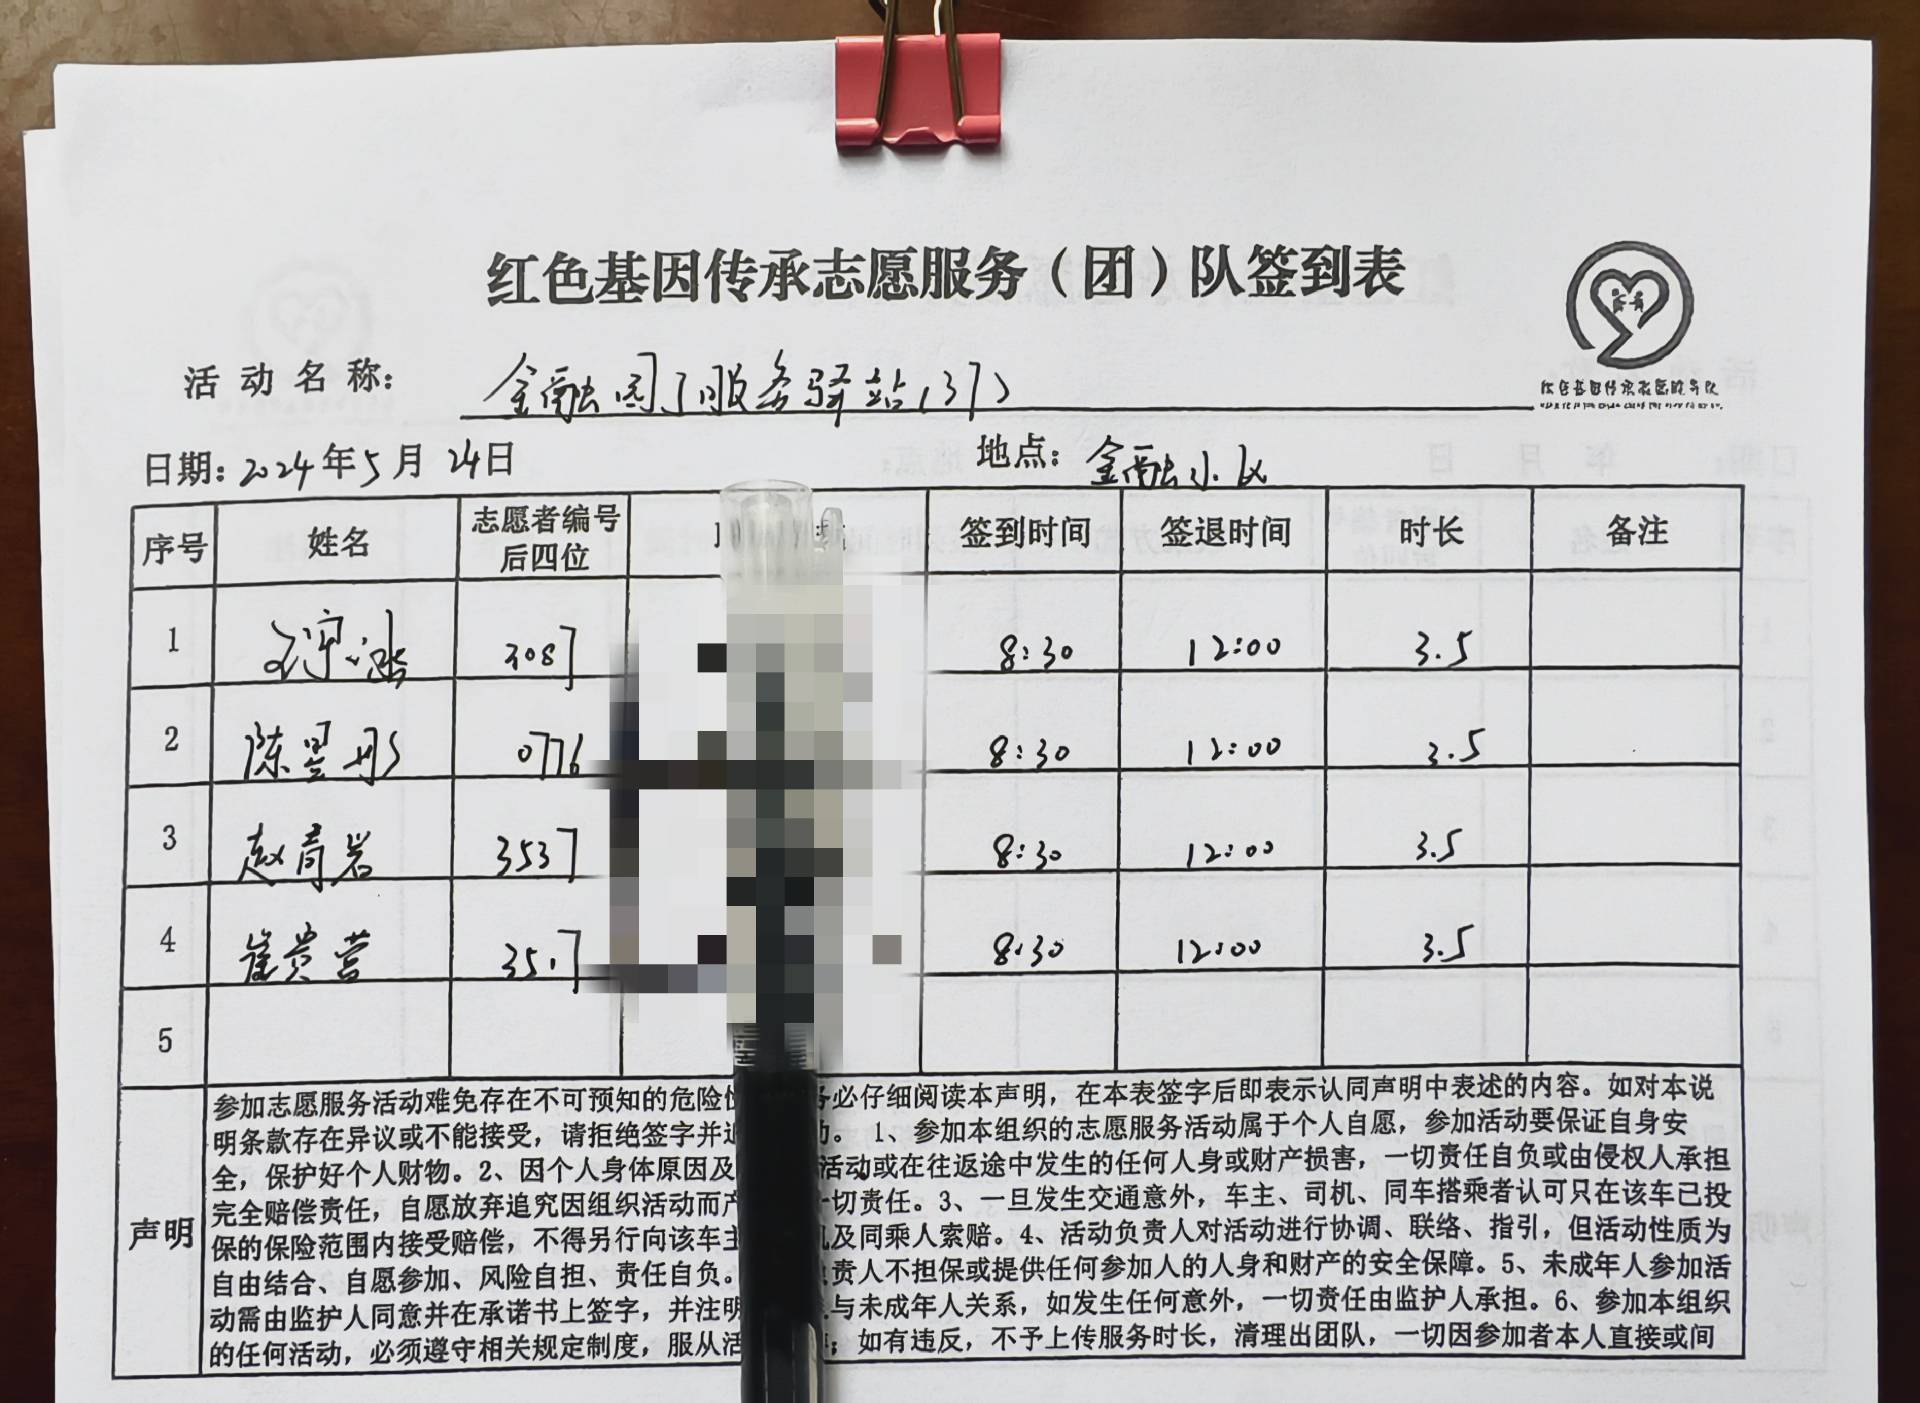 红色基因传承志愿服务（团）队签到表
活动名称： 金融园丁服务驿站（37）
日期：2024年5月24日 地点：金融小区
序号 姓名 志愿者编号后四位 签到时间 签退时间 时长 备注
1 3087 8:30 12:00 3.5
2 陈昱彤 0776 8:30 12:00 3.5
3 赵青岩 3537 8:30 12:00 3.5
4 崔贵营 3517 8:30 12:00 3.5
5
声明
参加志愿服务活动难免存在不可预知的危险 必仔细阅读本声明，在本表签字后即表示认同声明中表述的内容。如对本说
明条款存在异议或不能接受，请拒绝签字并 。1、参加本组织的志愿服务活动属于个人自愿，参加活动要保证自身安
全，保护好个人财物。2、因个人身体原因及 活动或在往返途中发生的任何人身或财产损害，一切责任自负或由侵权人承担
完全赔偿责任，自愿放弃追究因组织活动而产 一切责任。3、一旦发生交通意外，车主、司机、同车搭乘者认可只在该车已投
保的保险范围内接受赔偿，不得另行向该车主 及同乘人索赔。4、活动负责人对活动进行协调、联络、指引，但活动性质为
自由结合、自愿参加、风险自担、责任自负。 责人不担保或提供任何参加人的人身和财产的安全保障。5、未成年人参加活
动需由监护人同意并在承诺书上签字，并注明 与未成年人关系，如发生任何意外，一切责任由监护人承担。6、参加本组织
的任何活动，必须遵守相关规定制度，服从活 ；如有违反，不予上传服务时长，清理出团队，一切因参加者本人直接或间